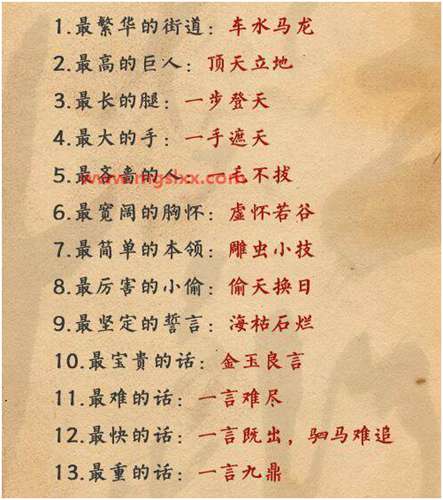 1.最繁华的街道：车水马龙
2.最高的巨人：顶天立地
3.最长的腿：一步登天
4.最大的手：一手遮天
5.最吝啬的人：一毛不拔
www.mgsixx.com
6.最宽阔的胸怀：虚怀若谷
7.最简单的本领：雕虫小技
8.最厉害的小偷：偷天换日
9.最坚定的誓言：海枯石烂
10.最宝贵的话：金玉良言
11.最难的话：一言难尽
12.最快的话：一言既出，驷马难追
13.最重的话：一言九鼎